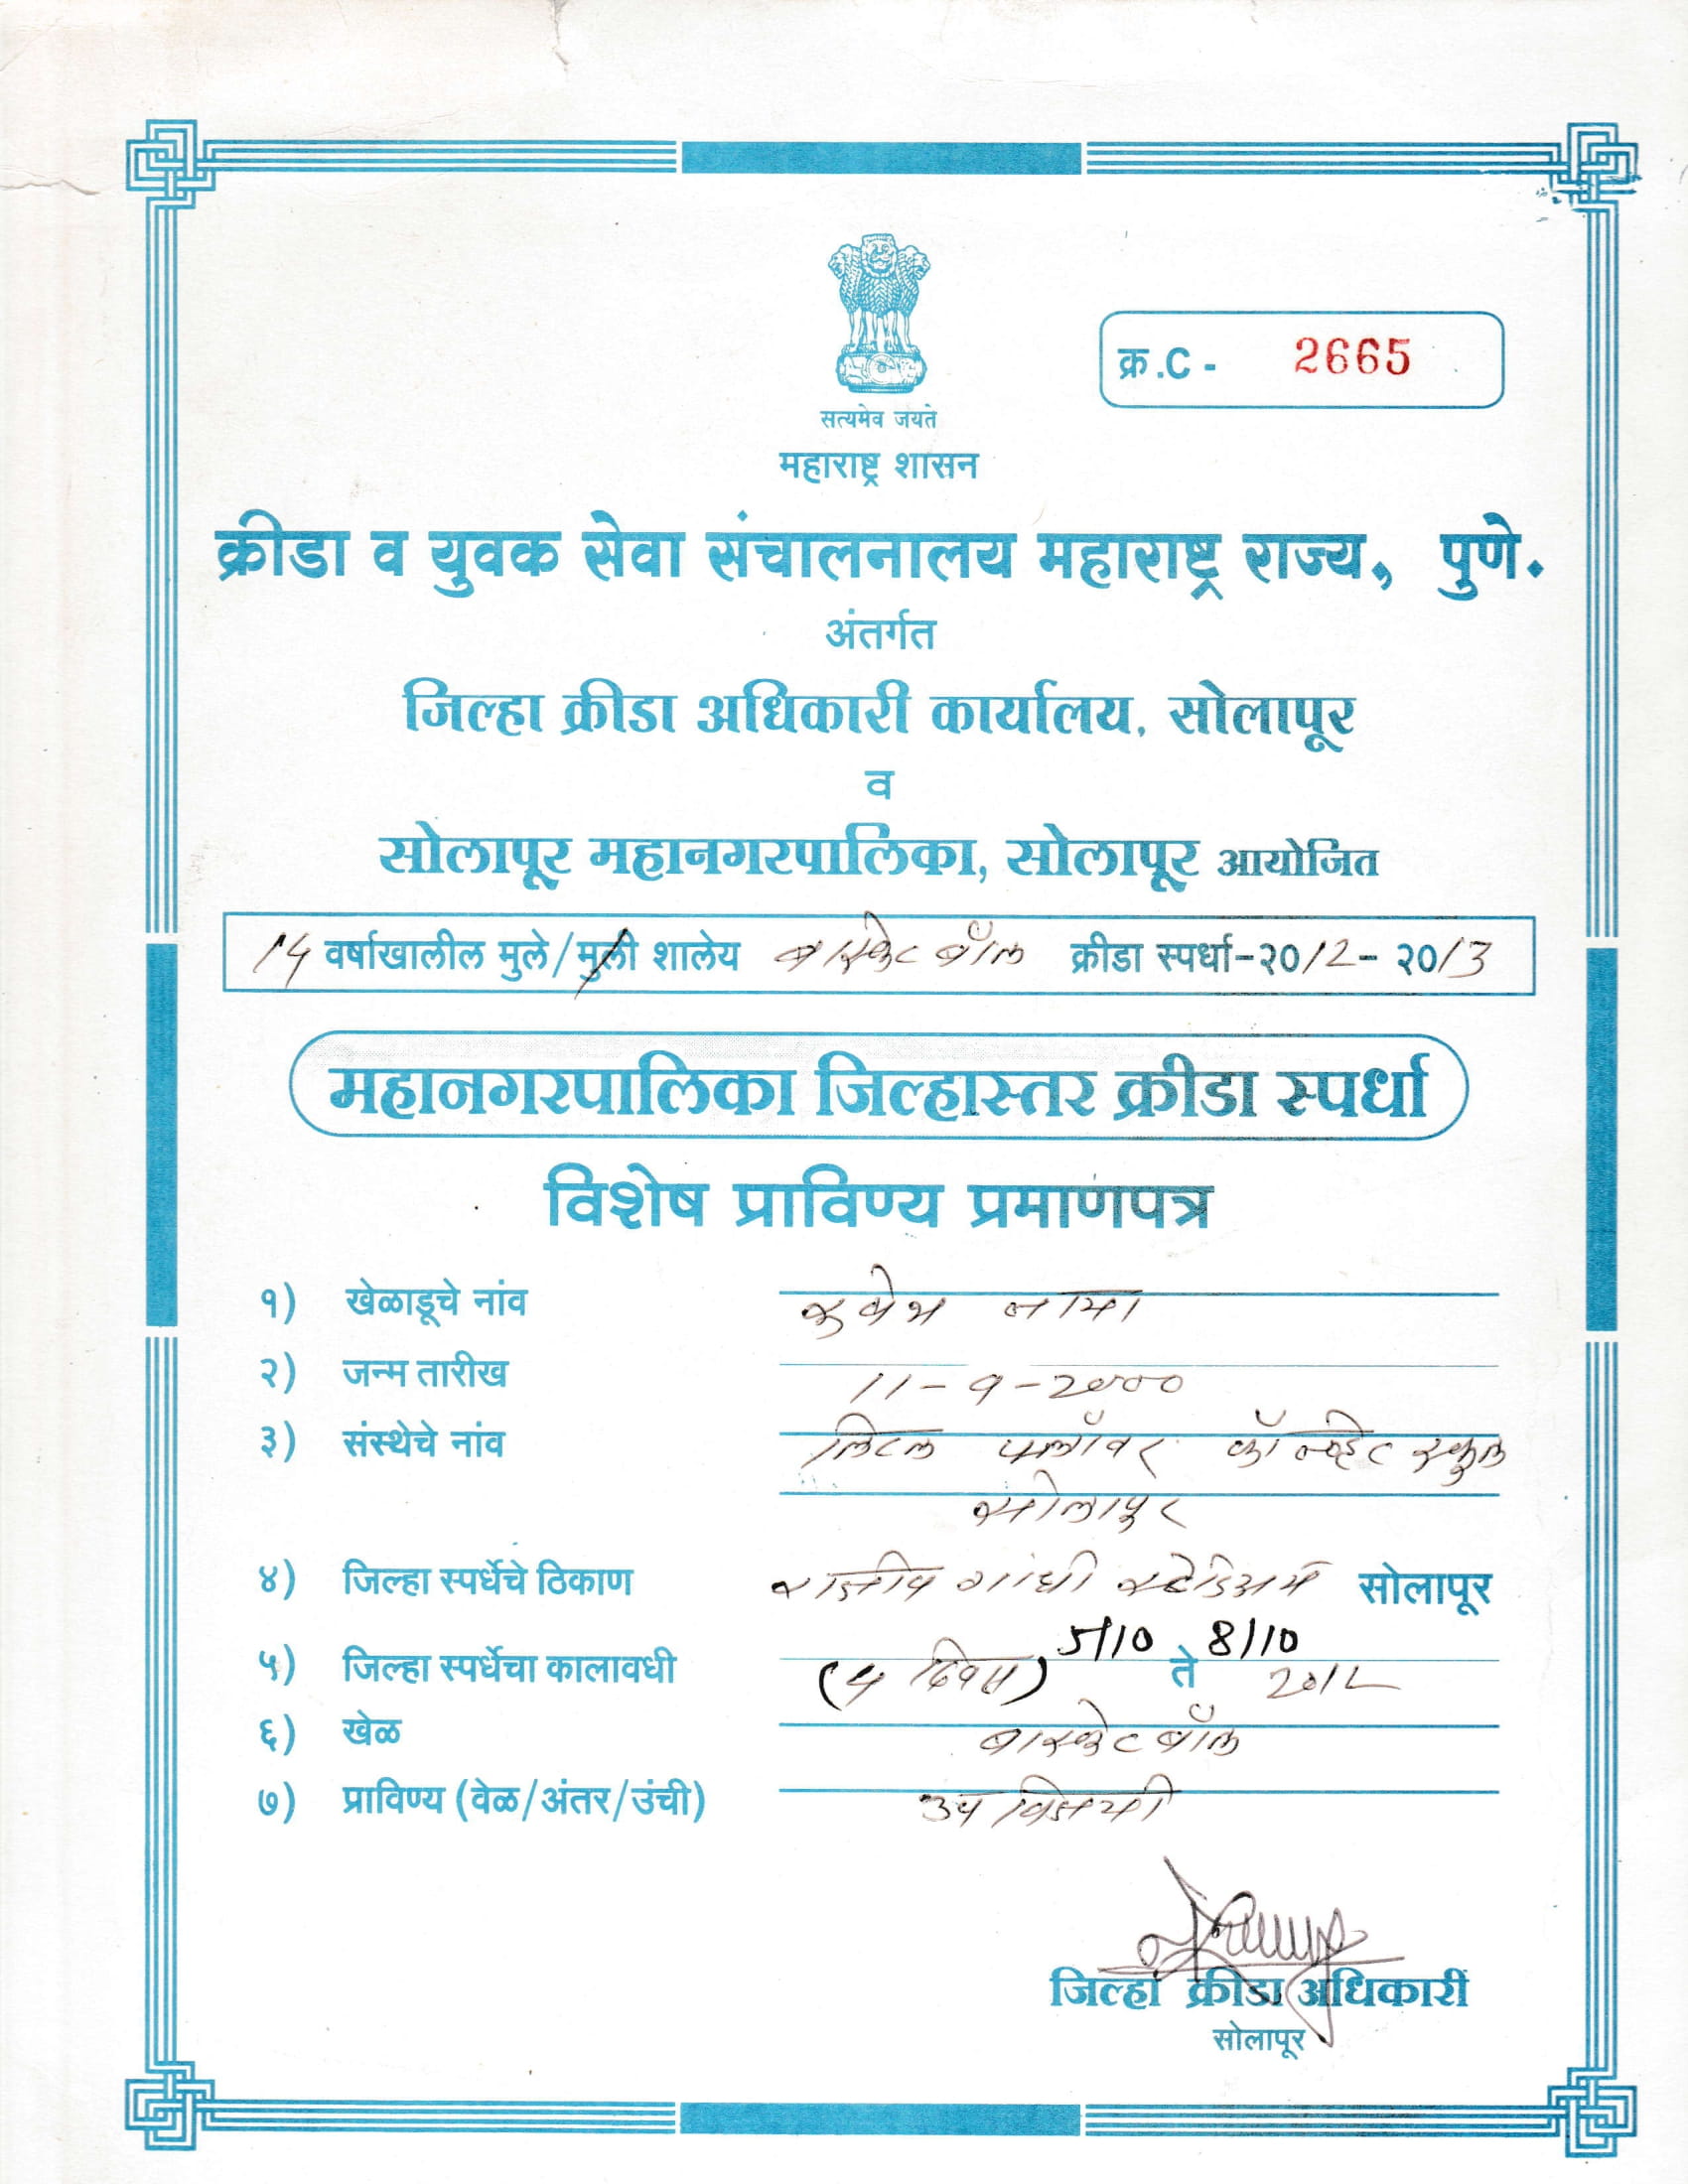 क्र.C - 2665
सत्यमेव जयते
महाराष्ट्र शासन
क्रीडा व युवक सेवा संचालनालय महाराष्ट्र राज्य, पुणे.
अंतर्गत
जिल्हा क्रीडा अधिकारी कार्यालय, सोलापूर
व
सोलापूर महानगरपालिका, सोलापूर आयोजित
14 वर्षाखालील मुले/मुली शालेय बास्केट बॉल क्रीडा स्पर्धा-२०12- २०13
महानगरपालिका जिल्हास्तर क्रीडा स्पर्धा
विशेष प्राविण्य प्रमाणपत्र
१) खेळाडूचे नांव
२) जन्म तारीख 11-9-2000
३) संस्थेचे नांव लिटल फ्लॉवर कॉन्व्हेट स्कुल
सोलापुर
४) जिल्हा स्पर्धेचे ठिकाण राजीव गांधी स्टेडिअम सोलापूर
५) जिल्हा स्पर्धेचा कालावधी (4 दिवस) 5/10 ते 8/10 2012
६) खेळ बास्केट बॉल
७) प्राविण्य (वेळ/अंतर/उंची) उप विजयी
जिल्हा क्रीडा अधिकारी
सोलापूर